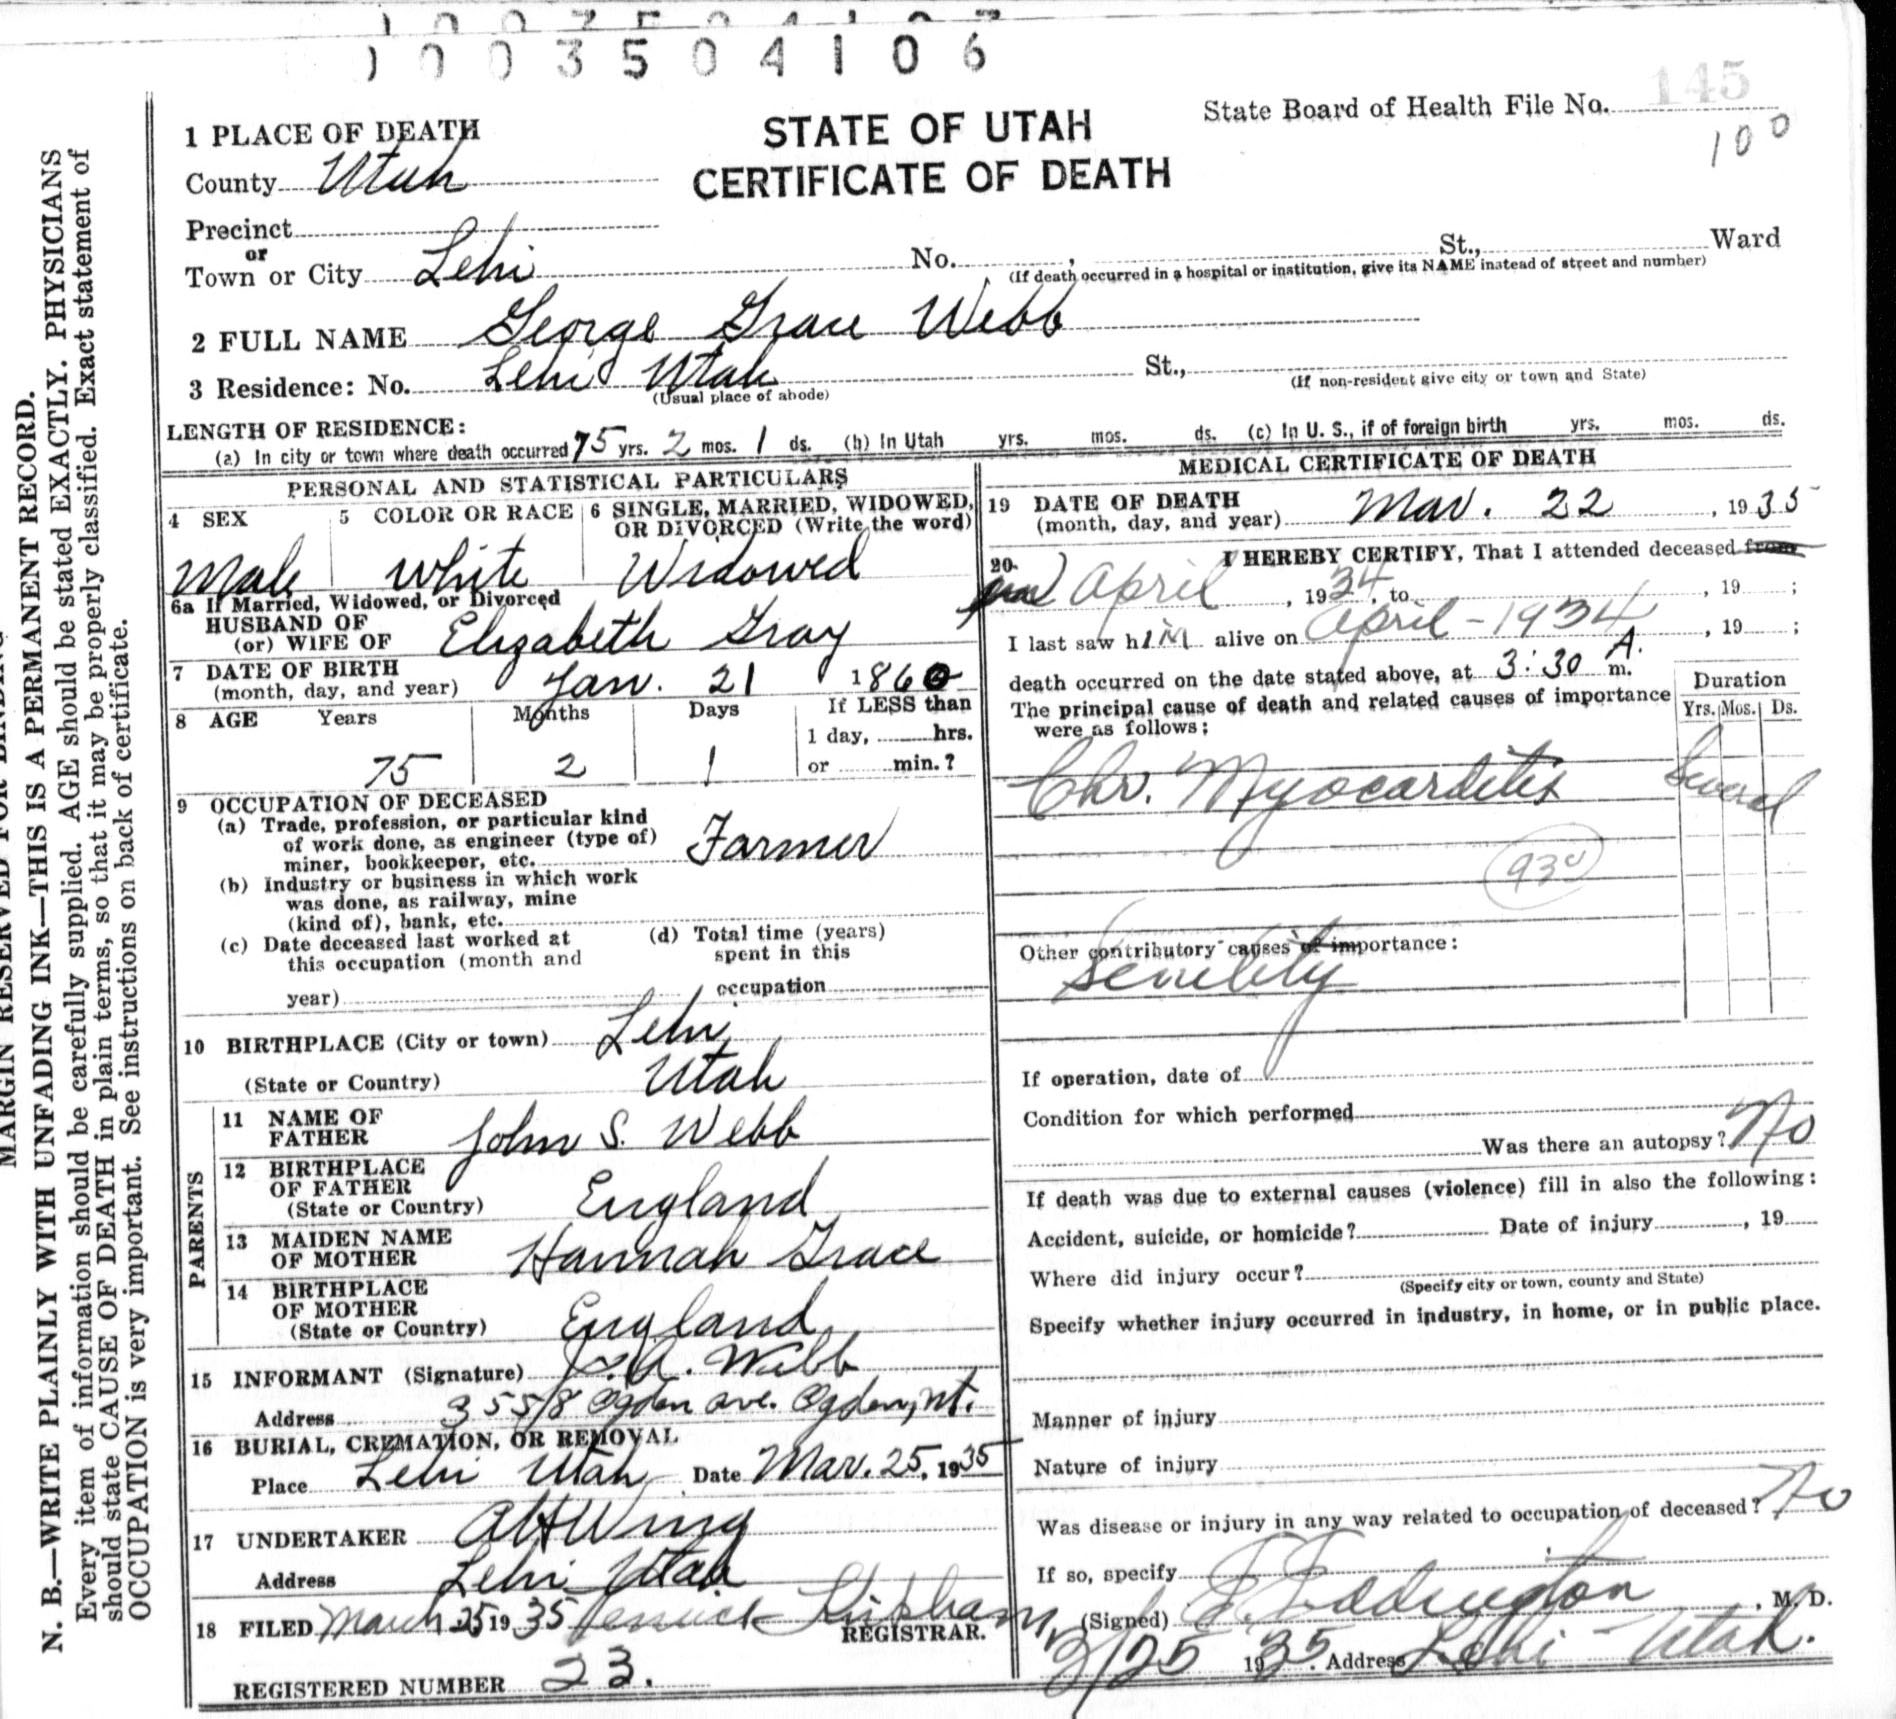 1003504106
145
State Board of Health File No.
100
STATE OF UTAH
CERTIFICATE OF DEATH
1 PLACE OF DEATH
County Utah
Precinct
or
Town or City Lehi No. , St., Ward
(If death occurred in a hospital or institution, give its NAME instead of street and number)
2 FULL NAME George Grace Webb
3 Residence: No. Lehi Utah St.,
(Usual place of abode) (If non-resident give city or town and State)
LENGTH OF RESIDENCE:
(a) In city or town where death occurred 75 yrs. 2 mos. 1 ds. (b) In Utah yrs. mos. ds. (c) In U. S., if of foreign birth yrs. mos. ds.
PERSONAL AND STATISTICAL PARTICULARS
4 SEX
Male
5 COLOR OR RACE
White
6 SINGLE, MARRIED, WIDOWED,
OR DIVORCED (Write the word)
Widowed
6a If Married, Widowed, or Divorced
HUSBAND OF
(or) WIFE OF Elizabeth Gray
7 DATE OF BIRTH
(month, day, and year) Jan. 21 1860
8 AGE Years Months Days If LESS than
1 day, hrs.
75 2 1 or min.?
9 OCCUPATION OF DECEASED
(a) Trade, profession, or particular kind
of work done, as engineer (type of)
miner, bookkeeper, etc. Farmer
(b) Industry or business in which work
was done, as railway, mine
(kind of), bank, etc.
(c) Date deceased last worked at
this occupation (month and
year)
(d) Total time (years)
spent in this
occupation
10 BIRTHPLACE (City or town) Lehi
(State or Country) Utah
PARENTS
11 NAME OF
FATHER John S. Webb
12 BIRTHPLACE
OF FATHER
(State or Country) England
13 MAIDEN NAME
OF MOTHER Hannah Grace
14 BIRTHPLACE
OF MOTHER
(State or Country) England
15 INFORMANT (Signature) Webb
Address 3558 Ogden ave. Ogden, Ut.
16 BURIAL, CREMATION, OR REMOVAL
Place Lehi Utah Date Mar. 25, 1935
17 UNDERTAKER AH Wing
Address Lehi Utah
18 FILED March 25 1935
REGISTRAR.
REGISTERED NUMBER 23.
MEDICAL CERTIFICATE OF DEATH
19 DATE OF DEATH
(month, day, and year) Mar. 22, 1935
20 I HEREBY CERTIFY, That I attended deceased from
April, 1934, to , 19 ;
I last saw him alive on April - 1934, 19 ;
death occurred on the date stated above, at 3:30 A. m.
The principal cause of death and related causes of importance
were as follows;
Duration
Yrs. Mos. Ds.
Chr. Myocarditis Several
Other contributory causes of importance:
Senility
If operation, date of
Condition for which performed
Was there an autopsy? No
If death was due to external causes (violence) fill in also the following:
Accident, suicide, or homicide? Date of injury , 19
Where did injury occur?
(Specify city or town, county and State)
Specify whether injury occurred in industry, in home, or in public place.
Manner of injury
Nature of injury
Was disease or injury in any way related to occupation of deceased? No
If so, specify
(Signed) E. Eddington, M. D.
3/25 1935. Address Lehi - Utah.
MARGIN RESERVED FOR BINDING
N. B.—WRITE PLAINLY WITH UNFADING INK—THIS IS A PERMANENT RECORD.
Every item of information should be carefully supplied. AGE should be stated EXACTLY. PHYSICIANS
should state CAUSE OF DEATH in plain terms, so that it may be properly classified. Exact statement of
OCCUPATION is very important. See instructions on back of certificate.